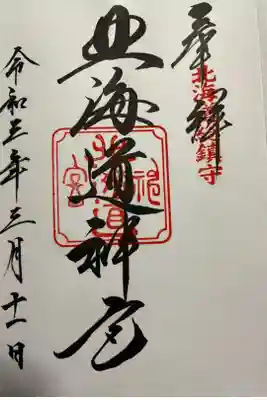 奉拝
北海道総鎮守
北海道神宮
令和三年三月十一日